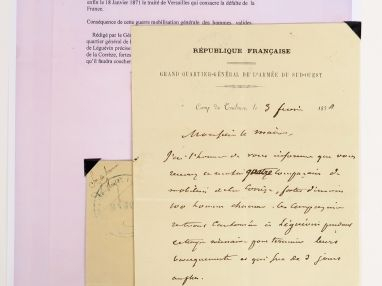 enfin le 18 Janvier 1871 le traité de Versailles qui consacre la défaite de
la France.
Conséquence de cette guerre mobilisation générale des hommes valides.
Rédigé par le Gé
quartier général de
de Léguévin précise
de la Corrèze, for
qu'il faudra coucher
RÉPUBLIQUE FRANÇAISE
GRAND QUARTIER-GÉNÉRAL DE L'ARMÉE DU SUD-OUEST
Camp de Toulouse le 3 février 1871
Monsieur le maire,
J'ai l'honneur de vous informer que vous
recevrez quatre compagnies de
mobilisés de la Corrèze, fortes d'environ
100 hommes chacune. Ces compagnies
seront à Léguévin pendant
pour terminer leurs
de 3 jours